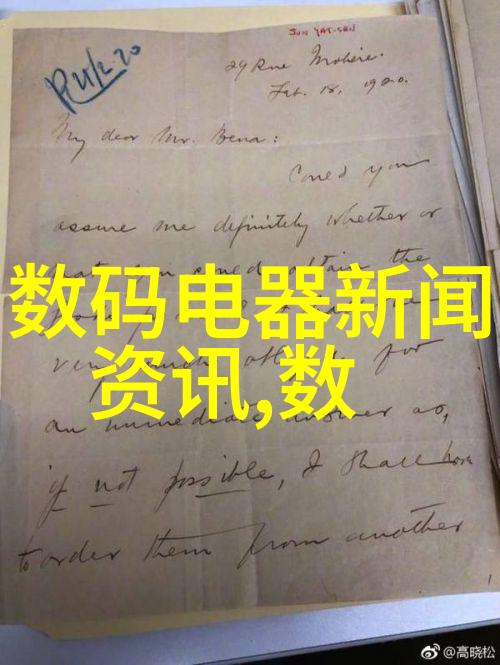 SUN YAT-SEN
R 21/2.20
29 Rue Molière.
Feb. 18, 1920.
My dear Mr. Bena:
Could you
assure me definitely whether or
the
数码电器新闻
资讯,数
very much for
an immediate answer as,
if not possible, I shall have
to order them from another
@高晓松